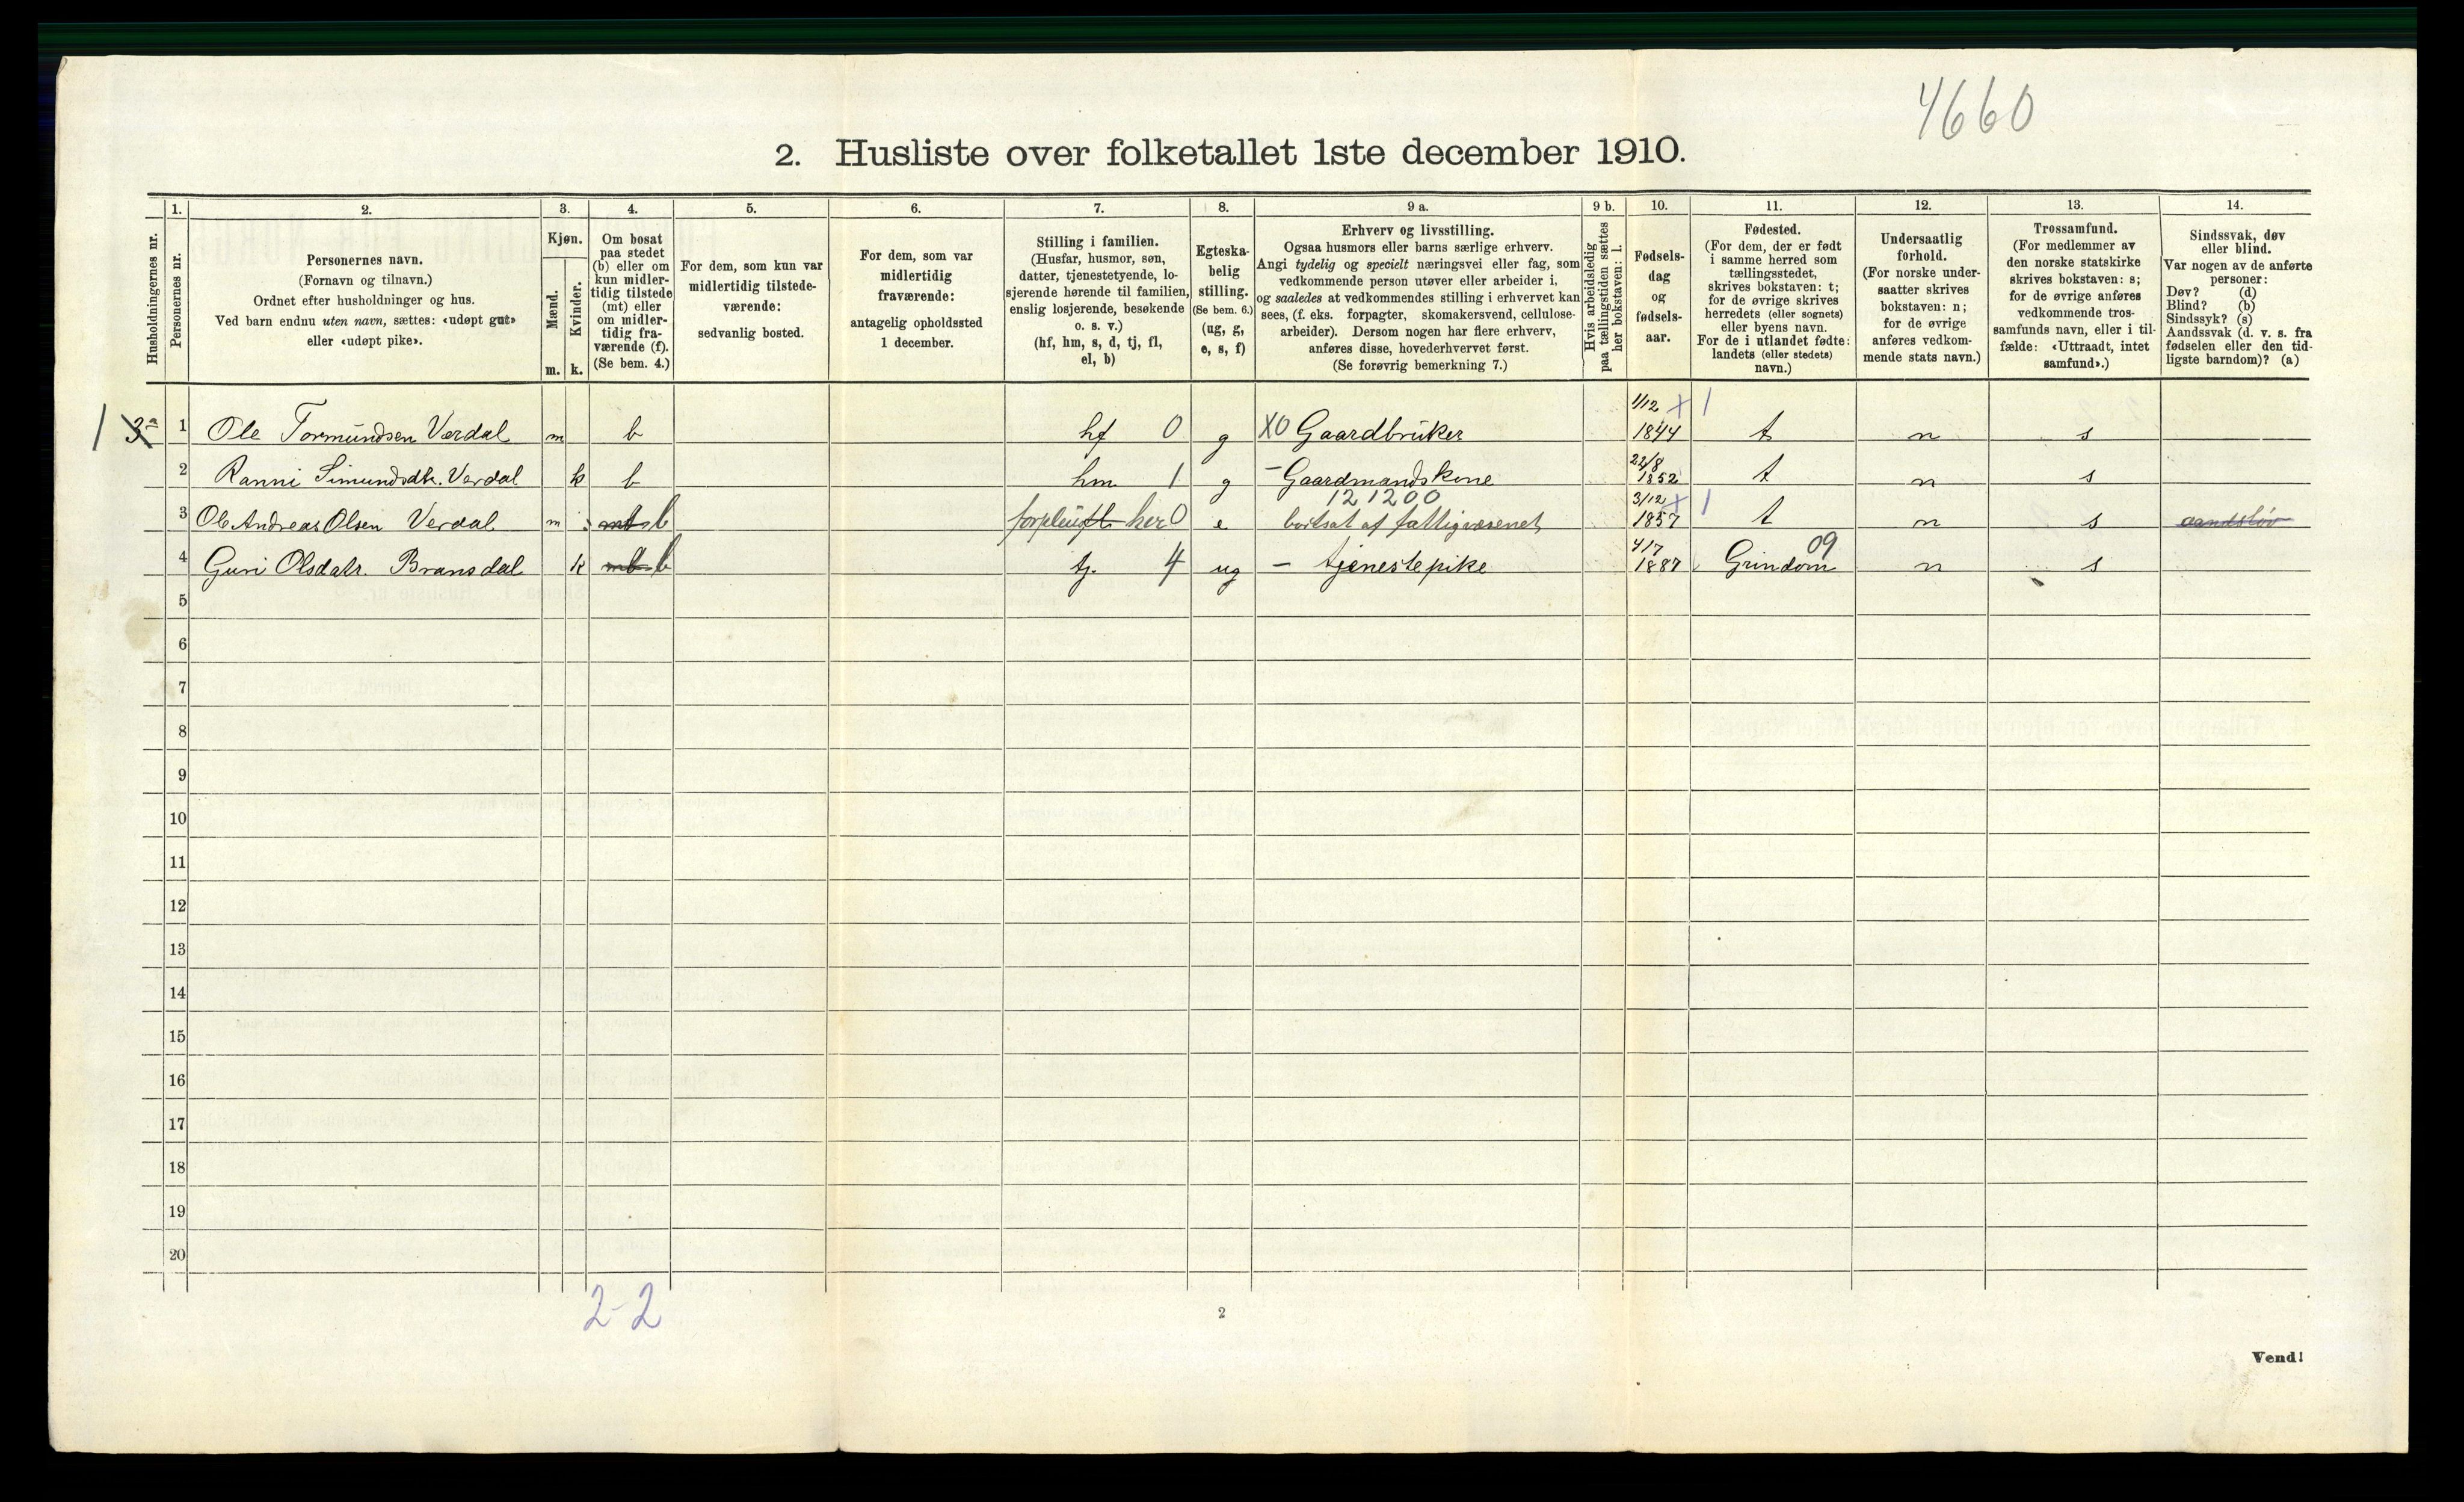 4660
2. Husliste over folketallet 1ste december 1910.
Husholdningernes nr.
1.
Personernes nr.
2.
Personernes navn.
(Fornavn og tilnavn.)
Ordnet efter husholdninger og hus.
Ved barn endnu uten navn, sættes: «udøpt gut»
eller «udøpt pike».
3.
Kjøn.
Mænd.
Kvinder.
m. k.
4.
Om bosat
paa stedet
(b) eller om
kun midler-
tidig tilstede
(mt) eller
om midler-
tidig fra-
værende (f).
(Se bem. 4.)
5.
For dem, som kun var
midlertidig tilstede-
værende:
sedvanlig bosted.
6.
For dem, som var
midlertidig
fraværende:
antagelig opholdssted
1 december.
7.
Stilling i familien.
(Husfar, husmor, søn,
datter, tjenestetyende, lo-
sjerende hørende til familien,
enslig losjerende, besøkende
o. s. v.)
(hf, hm, s, d, tj, fl,
el, b)
8.
Egteska-
belig
stilling.
(Se bem. 6.)
(ug, g,
e, s, f)
9 a.
Erhverv og livsstilling.
Ogsaa husmors eller barns særlige erhverv.
Angi tydelig og specielt næringsvei eller fag, som
vedkommende person utøver eller arbeider i,
og saaledes at vedkommendes stilling i erhvervet kan
sees, (f. eks. forpagter, skomakersvend, cellulose-
arbeider). Dersom nogen har flere erhverv,
anføres disse, hovederhvervet først.
(Se forøvrig bemerkning 7.)
9 b.
Hvis arbeidsledig
paa tællingstiden sættes
her bokstaven: l.
10.
Fødsels-
dag
og
fødsels-
aar.
11.
Fødested.
(For dem, der er født
i samme herred som
tællingsstedet,
skrives bokstaven: t;
for de øvrige skrives
herredets (eller sognets)
eller byens navn.
For de i utlandet fødte:
landets (eller stedets)
navn.)
12.
Undersaatlig
forhold.
(For norske under-
saatter skrives
bokstaven: n;
for de øvrige
anføres vedkom-
mende stats navn.)
13.
Trossamfund.
(For medlemmer av
den norske statskirke
skrives bokstaven: s;
for de øvrige anføres
vedkommende tros-
samfunds navn, eller i til-
fælde: «Uttraadt, intet
samfund».)
14.
Sindssvak, døv
eller blind.
Var nogen av de anførte
personer:
Døv? (d)
Blind? (b)
Sindssyk? (s)
Aandssvak (d. v. s. fra
fødselen eller den tid-
ligste barndom)? (a)
1 3 1 Ole Tormundsen Verdal m b hf 0 g X0 Gaardbruker 1/12 1844 t n s
2 Ranni Simundsdtr. Verdal k b hm 1 g - Gaardmandskone 22/8 1852 t n s
121200
3 Ole Andreas Olsen Verdal m mt b her 0 e bortsat af fattigvæsenet 3/12 1857 t n s
09
4 Guri Olsdatr. Bransdal k mt b tj. 4 ug - tjenestepike 4/7 1887 Grindom n s
5
6
7
8
9
10
11
12
13
14
15
16
17
18
19
20
2-2
2
Vend!